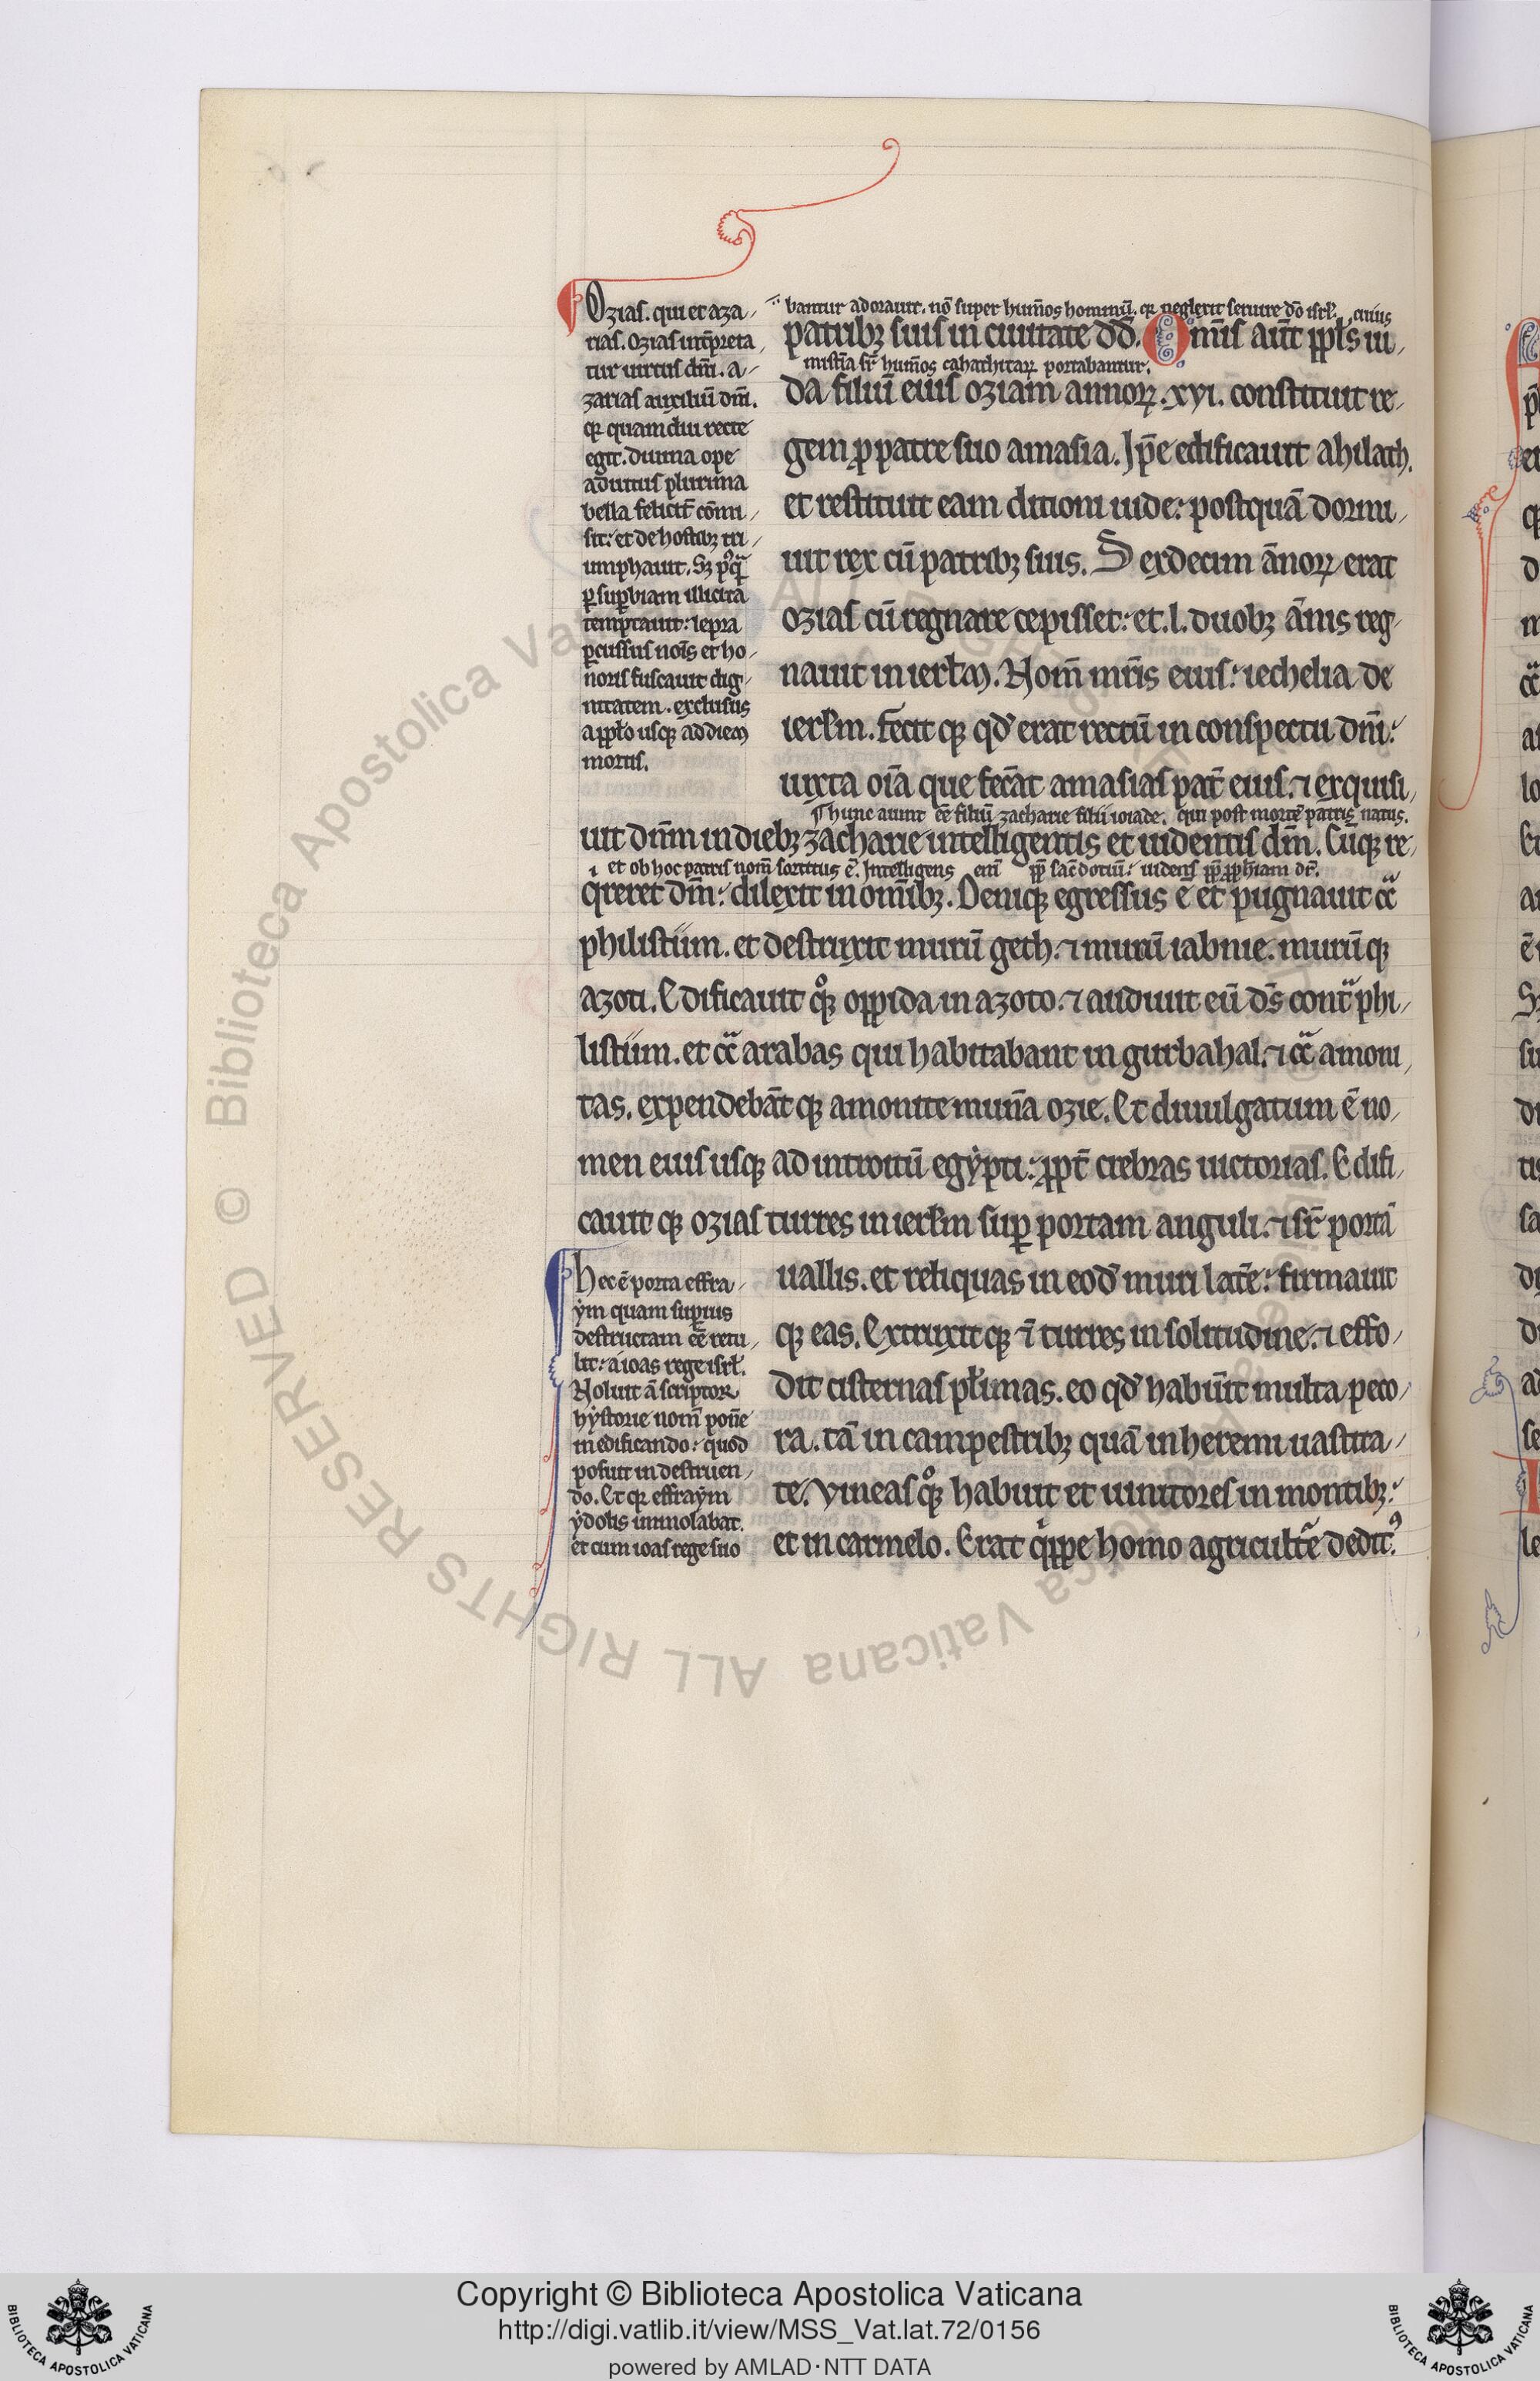 Ozias. qui et aza
rias. Ozias int̄preta
tur uirtus dn̄i. a
zarias auxiliū dn̄i.
qꝛ quamdiu recte
egit. diuina ope
adiutus plurima
bella felicit̄ cōmi
sit: et de hostibꝫ tri
umphauit. Sꝫ
ꝑ suꝑbiam illicita
temptauit: lepra
ꝑcussus noīs et ho
noris fuscauit dig
nitatem. exclusus
a ppl̄o usqꝫ ad diem
mortis.
bantur adorauit. nō super hum̄os hominū. qꝛ neglexit seruire dō isrl̄. cuius
patribꝫ suis in ciuitate dd̄. Omīs aut̄ ppl̄s iu
mist̄ia sr̄ hum̄os cahathitaꝝ portabantur.
da filiū eius oziam annoꝝ .xvi. constituit re
gem ꝓ patre suo amasia. Ip̄e edificauit ahilath.
et restituit eam ditioni iude: postquā dormi
uit rex cū patribꝫ suis. Sexdecim ānoꝝ erat
ozias cū regnare cepisset: et .l. duobꝫ ānis reg
nauit in ierl̄m. Nom̄ mr̄is eius: iechelia de
ierl̄m. Fecit qꝫ qd̄ erat rectū in conspectu dn̄i:
iuxta oīa que fec̄at amasias pat̄ eius. ⁊ exquisi
hunc aiunt eē filiū zacharie filii ioiade. qui post mortē patris natus.
uit dn̄m in diebꝫ zacharie intelligentis et uidentis dn̄m. Cūqꝫ re
et ob hoc patris nom̄ sortitus ē. Intelligens eni᷒ pp̄ sac̄dotiū: uidens pp̄ ꝓph̄iam dr̄.
qreret dn̄m: dilexit in omībꝫ. Deniqꝫ egressus ē et pugnauit cc̄
philistiim. et destruxit murū geth. ⁊ murū iabnie. murūqꝫ
azoti. Edificauit qͦꝫ oppida in azoto. ⁊ adiuuit eū ds̄ cont̄ phi
listiim. et cc̄ arabas qui habitabant in gurbahal. ⁊ cc̄ amoni
tas. expendebāt qꝫ amonite mun̄a ozie. Et diuulgatum ē no
men eius usqꝫ ad introitū egẏpti: ppt̄ crebras uictorias. Edifi
cauit qꝫ ozias turres in ierl̄m suꝑ portam anguli. ⁊ sr̄ portā
uallis. et reliquas in eod̄ muri lat̄e: firmauit
qꝫ eas. Extruxit qꝫ ⁊̄ turres in solitudine. ⁊ effo
dit cisternas pl̄imas. eo qd̄ habūit multa peco
ra. tā in campestribꝫ quā in heremi uastita
te. Vineas qͦꝫ habuit et uinitores in montibꝫ:
et in carmelo. Erat qͥppe homo agricult̄e dedit᷒.
hec ē porta effra
ẏm quam suꝑius
destructam eē retu
lit: a ioas rege isrl̄.
Noluit ā scriptor
hẏstorie nom̄ pon̄e
in edificando: quod
posuit in destruen
do. Et qꝛ effraẏm
ẏdolis immolabat.
et cum ioas rege suo
Copyright © Biblioteca Apostolica Vaticana
http://digi.vatlib.it/view/MSS_Vat.lat.72/0156
powered by AMLAD·NTT DATA
BIBLIOTECA APOSTOLICA VATICANA
BIBLIOTECA APOSTOLICA VATICANA
© Biblioteca Apostolica Vaticana ALL RIGHTS RESERVED